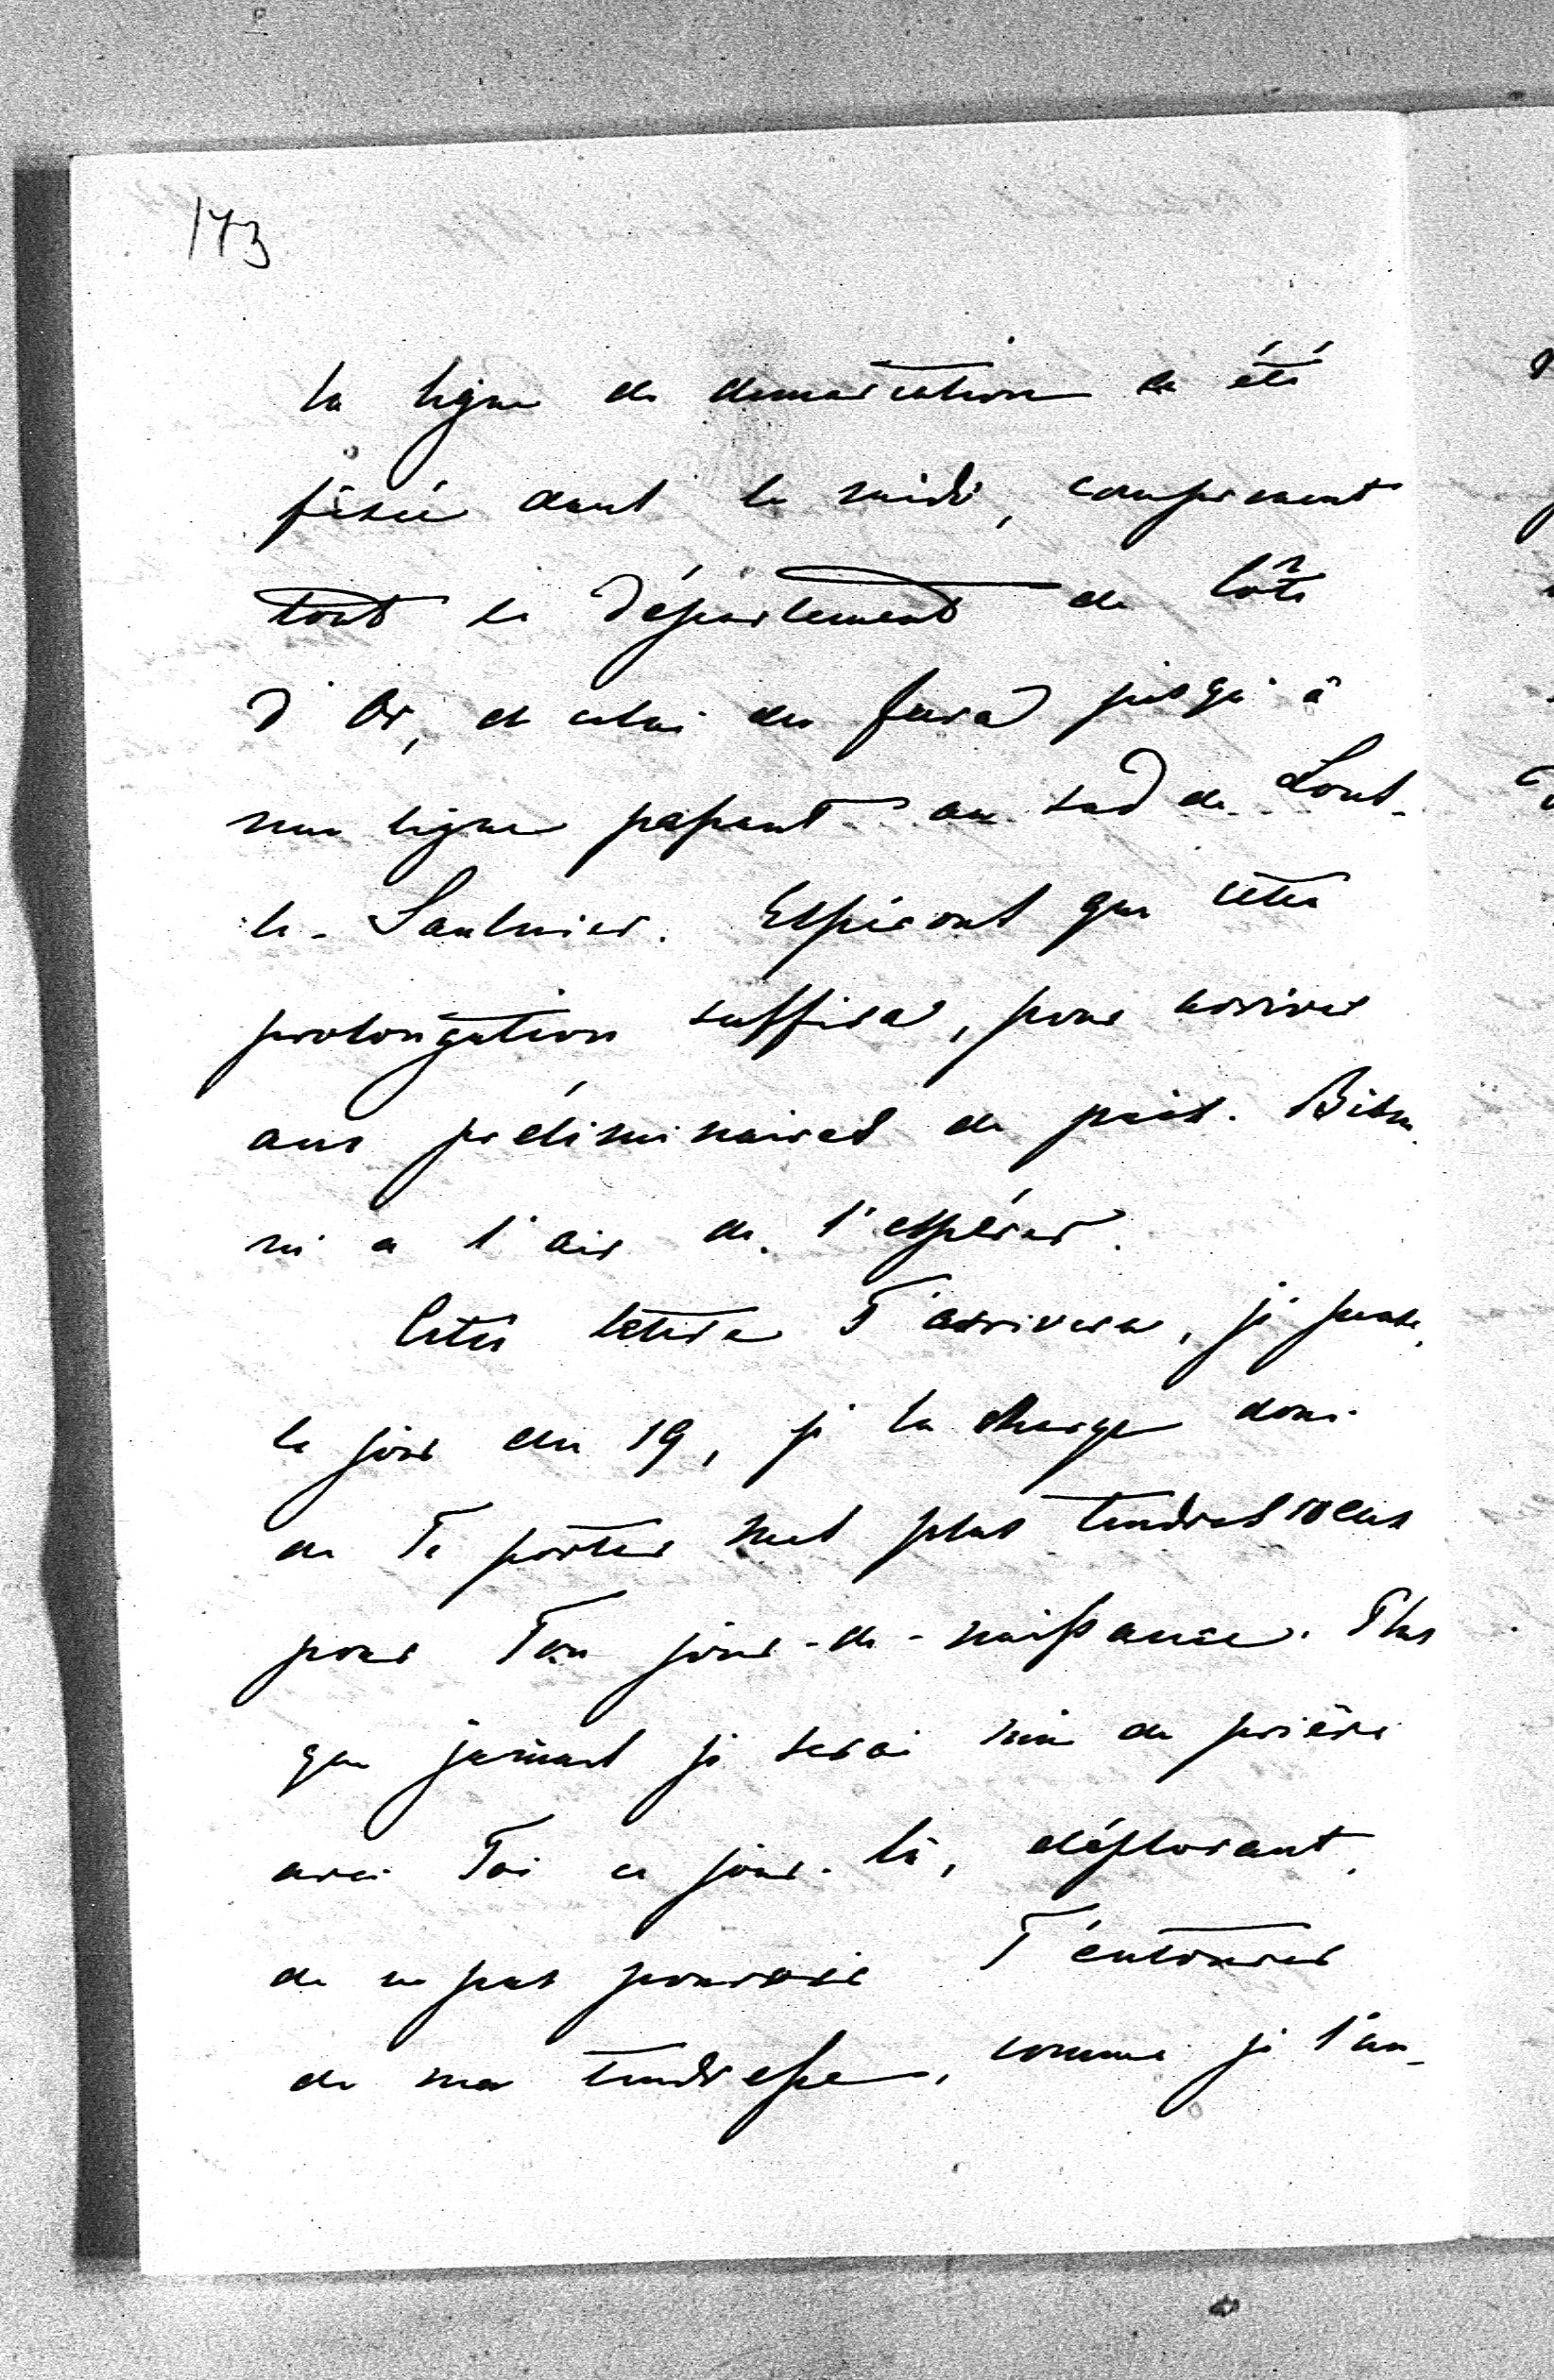 173
la ligne de demarcation a été
fixée dans le midi, comprenant
tout le Département de Côte
d'Or, et celui du Jura jusqu'à
une ligne passant au sud de Lons-
le-Saulnier. Espérons que cette
prolongation suffira, pour arriver
aux préliminaires de paix. Bism.
ni a l'air de l'espérer.
Cette lettre T'arrivera, je pense,
le jour du 19, je la charge donc
de Te porter mes plus tendres vœux
pour Ton jour-de-naissance. Plus
que jamais je serai unie de prière
avec Toi ce jour-là, déplorant
de ne pas pouvoir T'entourer
de ma tendresse, comme je l'au-